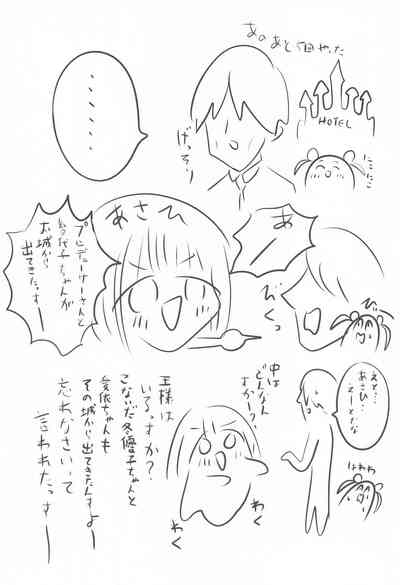 あのあと1回やった
HOTEL
げっそり
にこにこ
・・・・・・
あ
びくっ
あさひ
プロデューサーさんと
ちゃんが
お城から
出てきたっすー
えと…
あさひ…
えーとだな
はわわ
中は
どんなん
すかー?
王様は
いるっすか?
こないだ冬優子ちゃんと
愛依ちゃんも
あの城から出てきたんすよー
忘れなさいって
言われたっすー
わく
わく